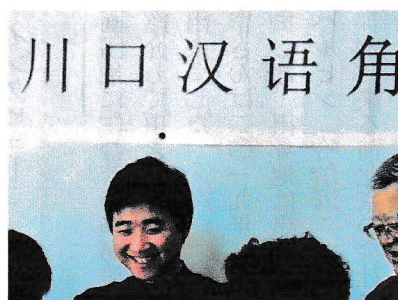 川口汉语角